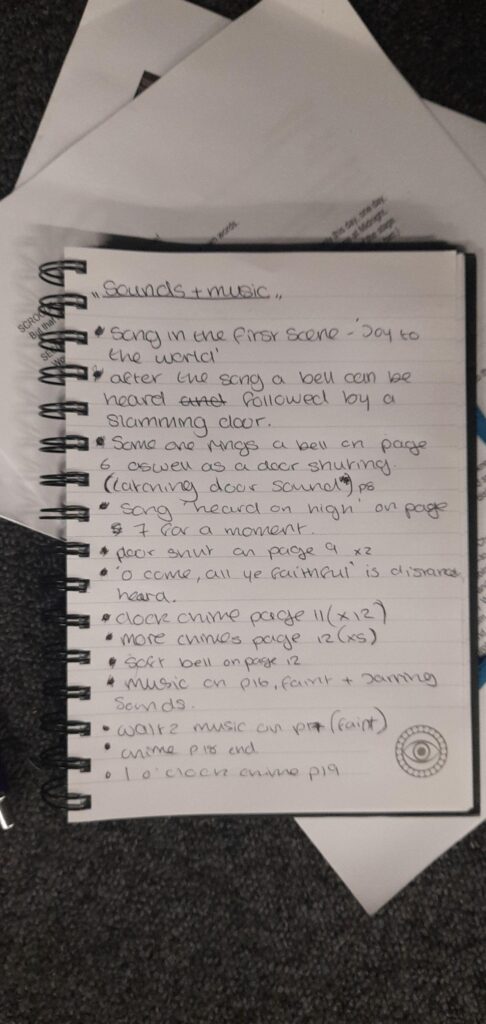 words.
this day, one day.
at Midnight.
the stage
SCROO
But that
SE
We
"Sounds + music"
• Song in the first scene - 'Joy to
the world'
• after the song a bell can be
heard and followed by a
slamming door.
• Some one rings a bell on page
6 aswell as a door shuting.
(Latching door sound) p8
• song 'heard on high' on page
7 for a moment.
• Door shut on page 9 x2
• 'o come, all ye faithful' is distance
heard.
• clock chime page 11 (x12)
• more chimes page 12 (x5)
• soft bell on page 12
• music on p16, faint + Jarring
sounds.
• waltz music on p17 (faint)
• chime p18 end
• 1 o'clock chime p19